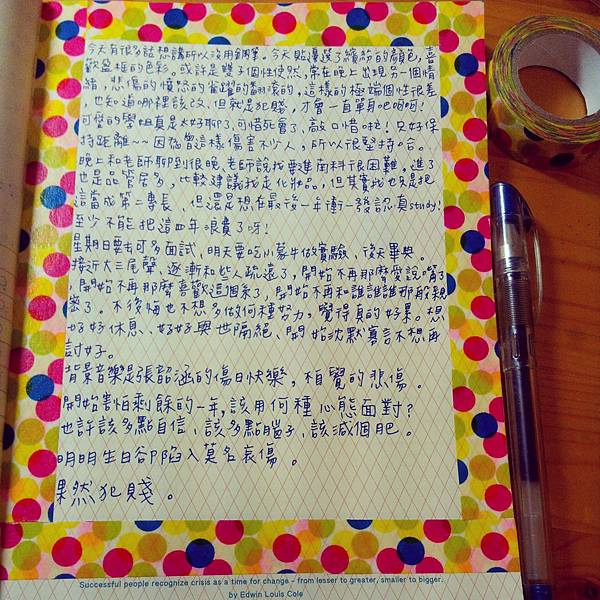 今天有很多話想講所以沒用鋼筆。今天貼邊選了繽紛的顏色,喜
歡盈框的色彩。或許是雙子個性使然,常在晚上出現另一個情
緒,悲傷的憤怒的雀躍的翻滾的,這樣的極端個性很差
,也知道哪裡能改,但就是犯賤,才會一直單身吧呵呵!
可愛的學姐真是太好聊了,可惜死會了,
持距離~~因為曾這樣傷害不少人,所以很堅持。
晚上和老師聊到很晚,老師說我要進南科很困難。進了
也是品管居多,比較建議我走化妝品。但其實我也只是把
這當成第二專長,但還是想在最後一年衝一發認真study!
至少不能把這四年浪費了呀!
星期日要去可多面試,明天要吃小蒙牛做實驗、後天畢典。
接近大三尾聲、逐漸和些人疏遠了,開始不再那麼愛說嘴了
,開始不再那麼喜歡這個系了,開始不再和誰誰誰那般親
密了。不後悔也不想多做何種努力,覺得真的好累。想
好好休息、好好與世隔絕、開始沈默寡言不想再
討好。
背景音樂是張韶涵的傷日快樂,相覺的悲傷。
開始害怕剩餘的一年,該用何種心態面對?
也許該多點自信、該多點膽子、該減個肥。
明明生日卻陷入莫名哀傷。
果然犯賤。
Successful people recognize crisis as a time for change - from lesser to greater, smaller to bigger.
by Edwin Louis Cole